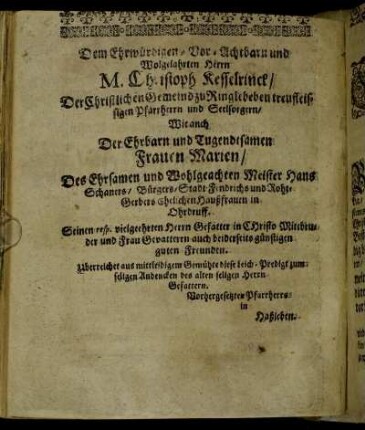 Dem Ehrwürdigen, Vor-Achtbarn und
Wolgelahrten Herrn
M. Christoph Kesselrinck/
Der Christlichen Gemeind zu Ringleben treufleis-
sigen Pfarrherrn und Seelsorgern/
Wie auch
Der Ehrbarn und Tugendtsamen
Frauen Marien/
Des Ehrsamen und Wohlgeachten Meister Hans
Schaners/ Bürgers/ Stadt-Findrichs und Roht-
Gerbers ehelichen Haußfrauen in
Ohrdruff.
Seinen resp. vielgeehrten Herrn Gefatter in CHristo Mitbru-
der und Frau Gevatterin auch beiderseits günstigen
guten Freunden.
Uberreichet aus mittleidigem Gemühte diese Leich-Predigt zum
seligen Andencken des alten seligen Herrn
Gefattern.
Vorhergesetzter Pfarrherr
in
Haßleben.